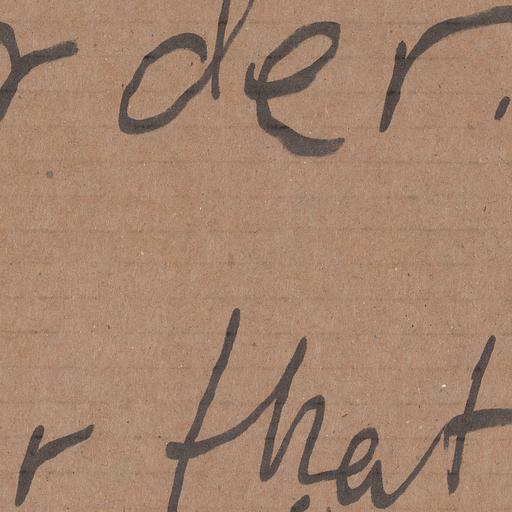 rder.
r that